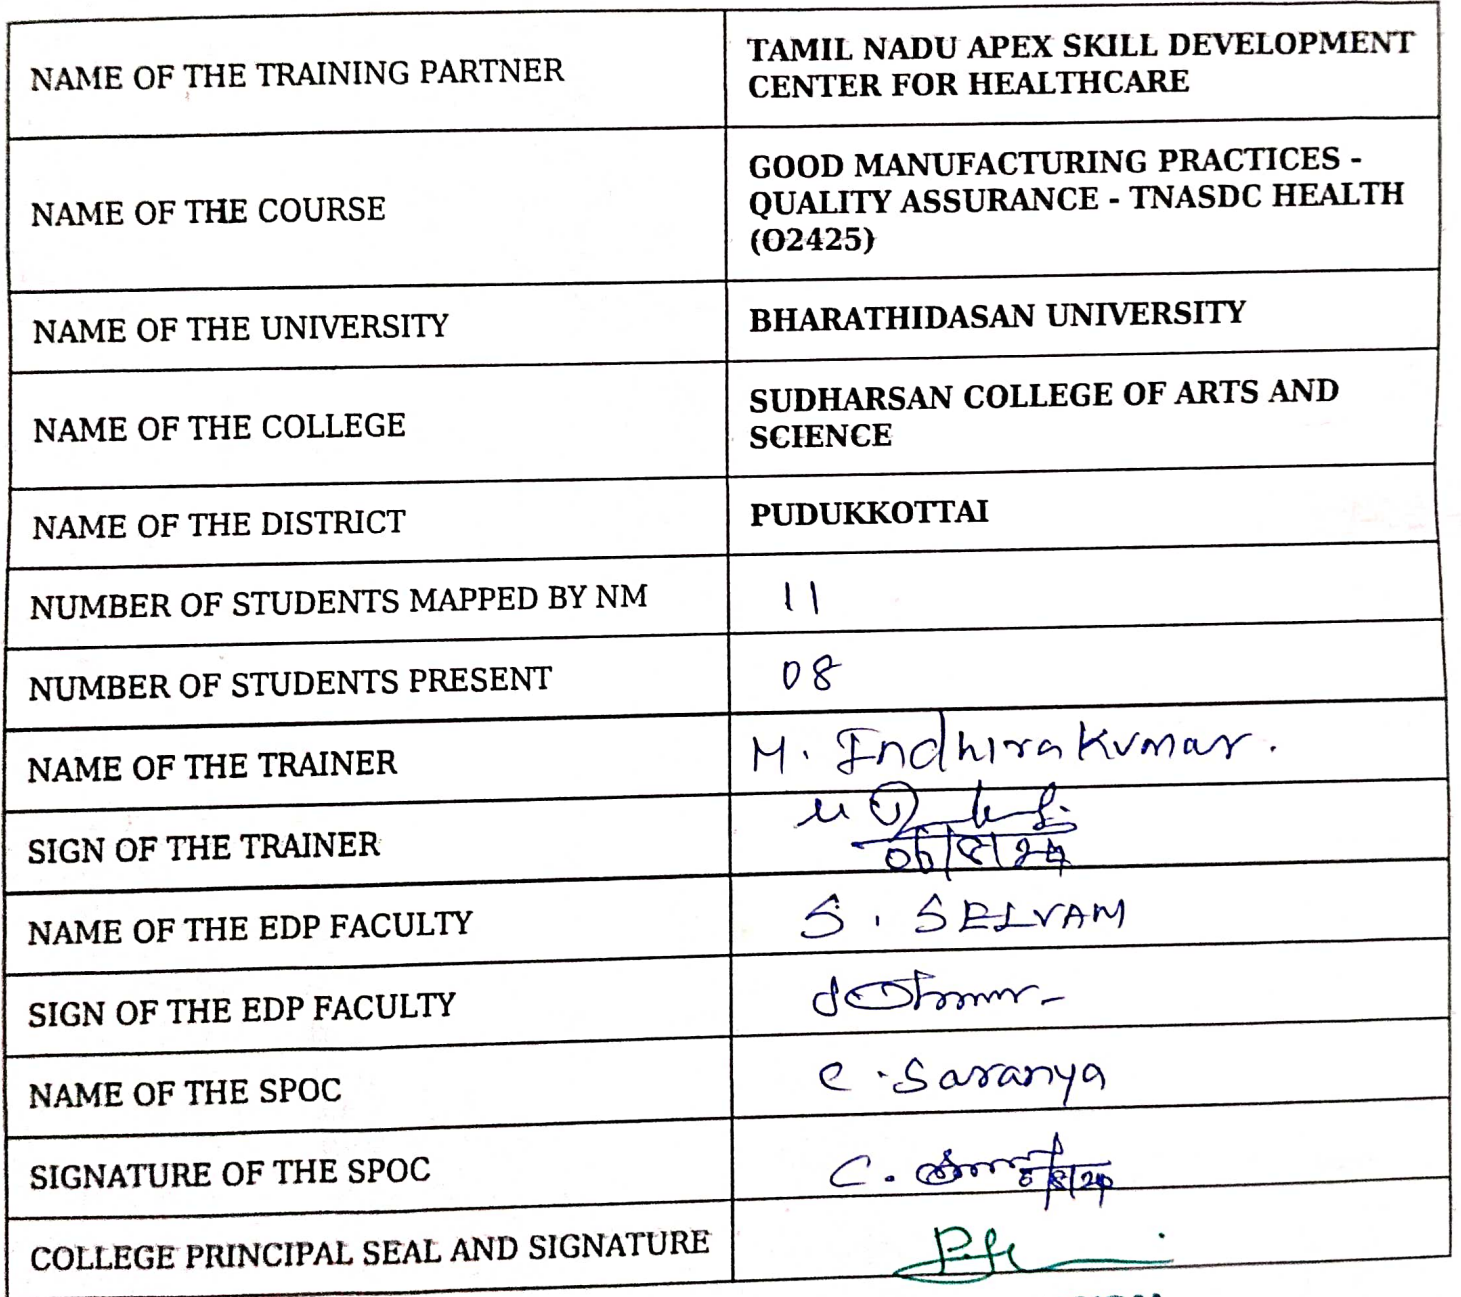 NAME OF THE TRAINING PARTNER
TAMIL NADU APEX SKILL DEVELOPMENT
CENTER FOR HEALTHCARE
NAME OF THE COURSE
GOOD MANUFACTURING PRACTICES -
QUALITY ASSURANCE - TNASDC HEALTH
(O2425)
NAME OF THE UNIVERSITY
BHARATHIDASAN UNIVERSITY
NAME OF THE COLLEGE
SUDHARSAN COLLEGE OF ARTS AND
SCIENCE
NAME OF THE DISTRICT
PUDUKKOTTAI
NUMBER OF STUDENTS MAPPED BY NM
11
NUMBER OF STUDENTS PRESENT
08
NAME OF THE TRAINER
M. Indhira Kumar.
SIGN OF THE TRAINER
06/8/24
NAME OF THE EDP FACULTY
S. SELVAM
SIGN OF THE EDP FACULTY
NAME OF THE SPOC
C. Saranya
SIGNATURE OF THE SPOC
C.
COLLEGE PRINCIPAL SEAL AND SIGNATURE